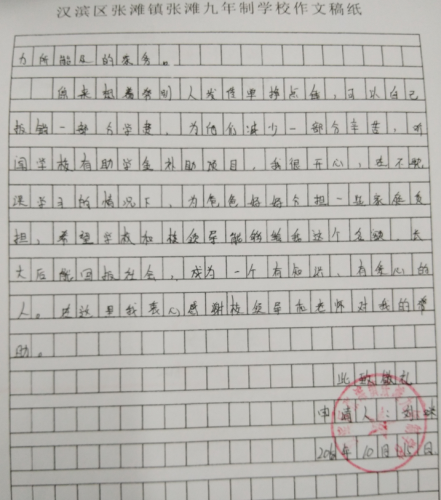 汉滨区张滩镇张滩九年制学校作文稿纸
力所能及的家务。
原来想着帮别人发传单挣点钱,可以自己
报销一部分学费,为他们减少一部分辛苦,听
闻学校有助学金补助项目,我很开心,在不耽
误学习的情况下,为爸爸妈妈分担一些家庭负
担,希望学校和校领导能够给我这个名额,长
大后能回报社会,成为一个有知识、有爱心的
人。在这里我衷心感谢校领导和老师对我的帮
助。
此致敬礼
申请人:
10月